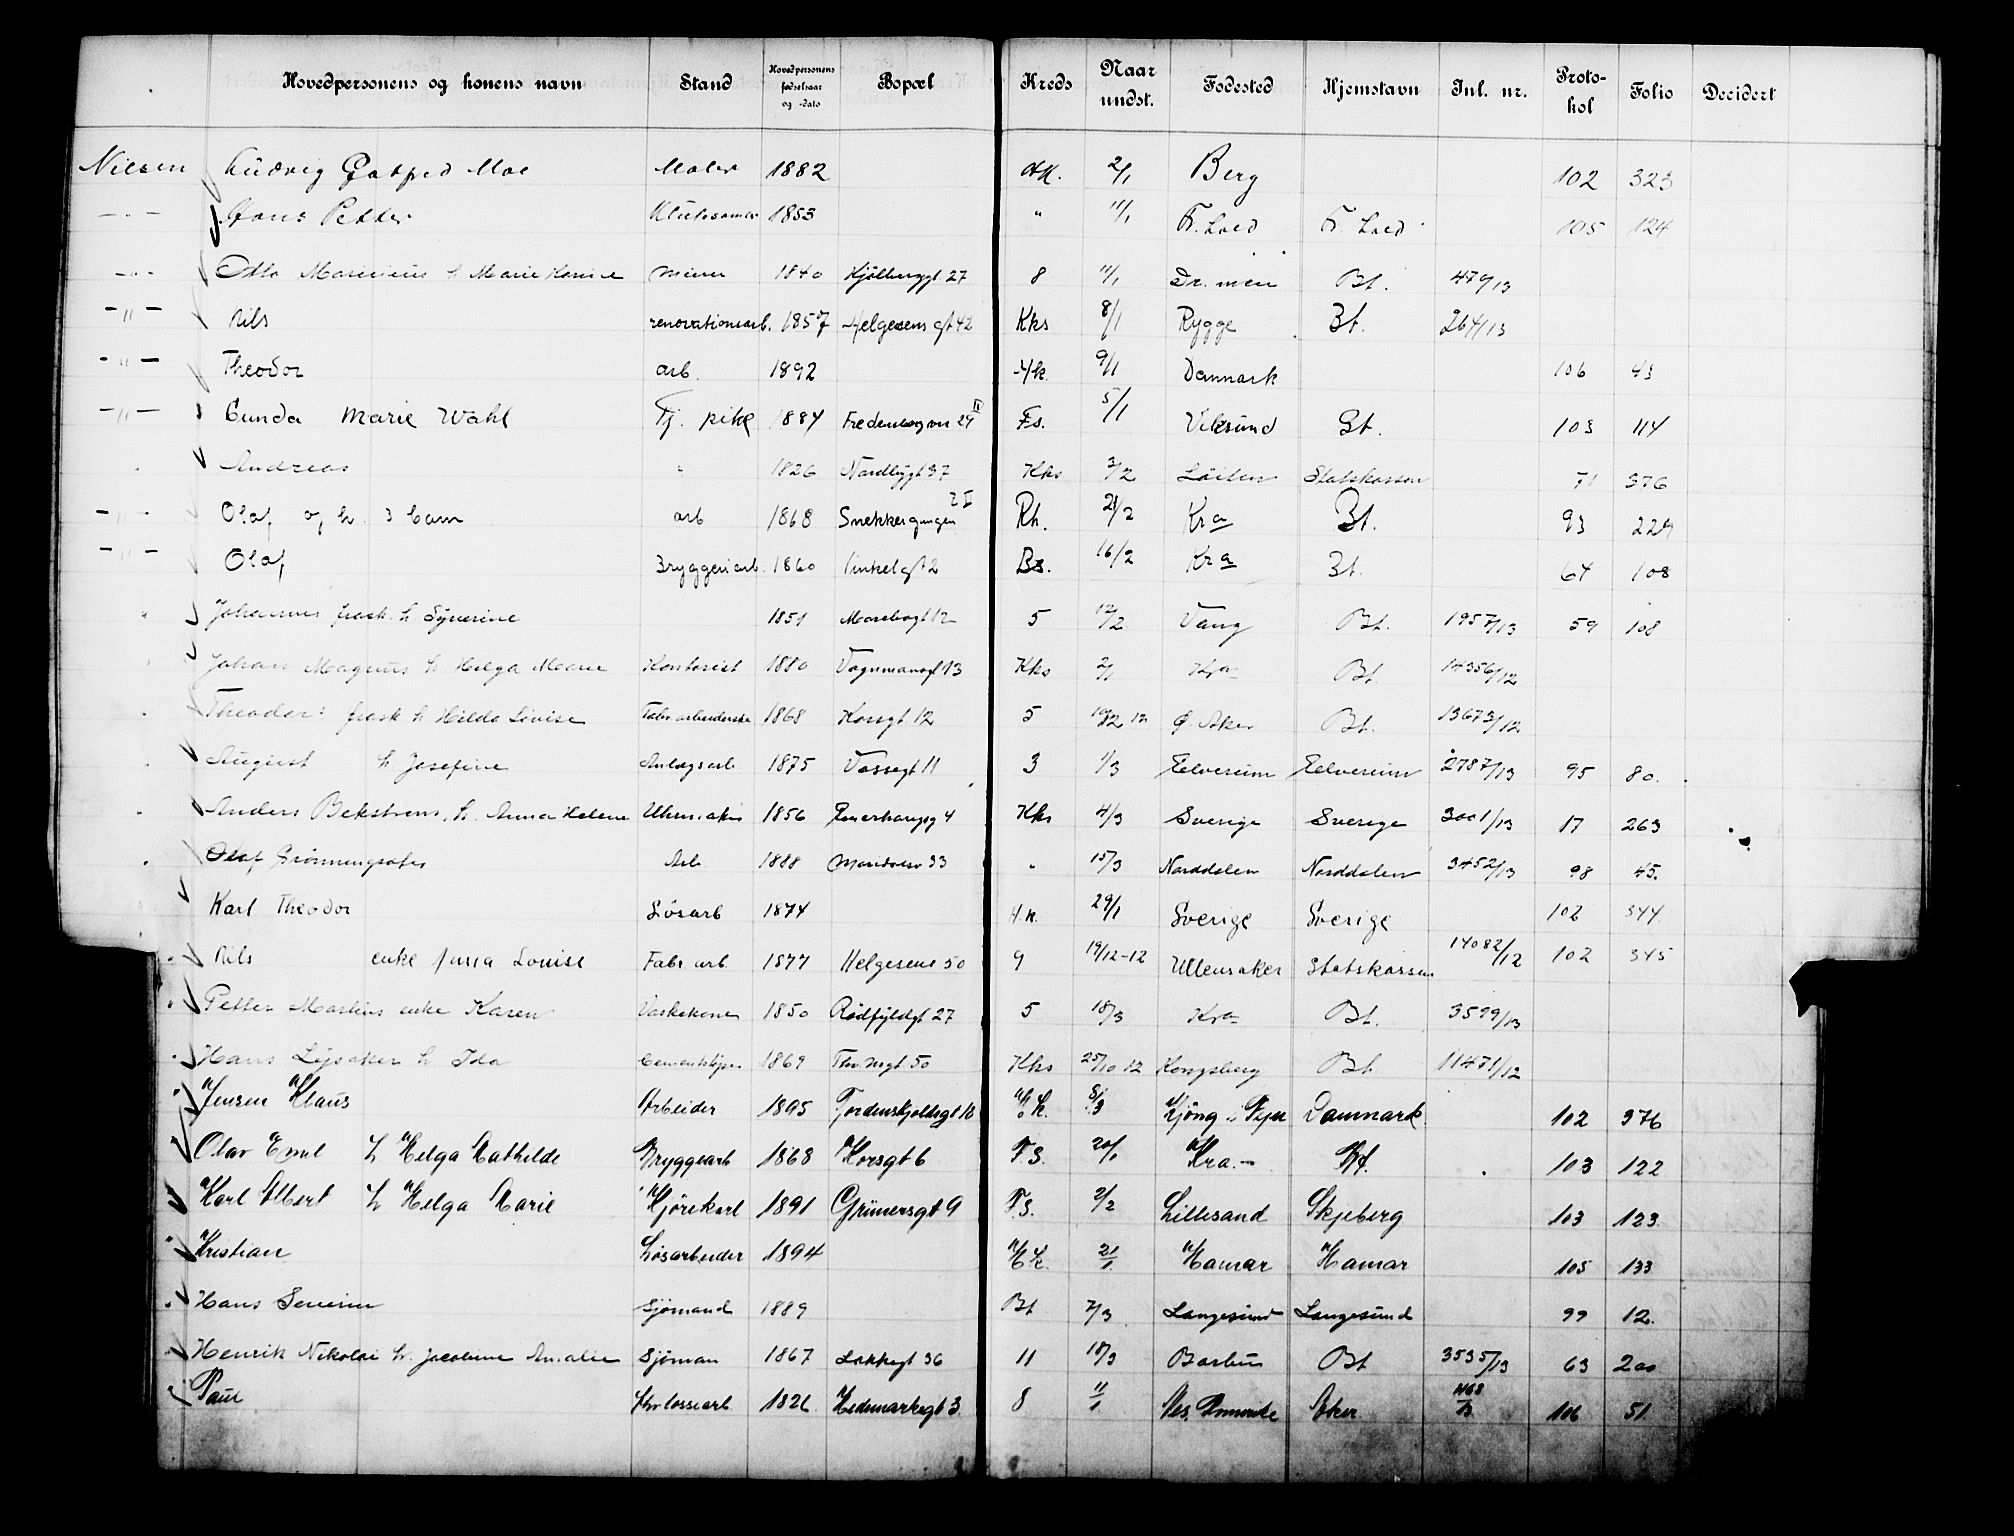 Hovedpersonens og konens navn Stand Hovedpersonens fødselsaar og -dato Bopæl Kreds Naar undst. Fødested Hjemstavn Inl. nr. Protokol Folio Decidert
Nilsen Ludvig Moe Maler 1882 2/1 Berg 102 323
— " — Hans Petter 1853 " 11/1 Fr. hald Fr. hald 105 124
— " — Otto h Marie 1840 27 8 11/1 Dr. men Bt. 479/13
— " — Nils renovationsarb. 1857 Helgesens gt 42 Kks 8/1 Rygge Bt. 264/13
— " — Theodor arb. 1892 9/1 Danmark 106 43
— " — Gunda Marie Wahl Tj. pike 1884 Fs. 5/1 Bt. 103 114
Andreas " 1826 Nordbygt 37 Kks 3/2 Løiten Statskassen 71 376
— " — Olaf og h. 3 barn arb 1868 Snekkergangen 2 I Rh. 21/2 Kra Bt. 93 229
— " — Olaf Bryggeriarb. 1860 Vinkelgt 2 Bs. 16/2 Kra Bt. 64 108
" Johannes frask. h Syverine 1851 5 12/2 Vang Bt. 1957/13 59 108
Johan Magnus h Helga Marie Kontorist 1880 Vognmansgt 13 Kks 2/1 Kra Bt. 14356/12
Theodor frask h Hilda Lovise Fabr arbeiderske 1868 Korsgt 12 5 12 Ø. Aker Bt. 13673/12
August h Josefine Anlægsarb 1875 Vossegt 11 3 1/3 Eelverum Eelverum 2787/13 95 80.
Anders Bekstrøm, h. Anna Helene Uhrmaker 1856 4 Kks 4/3 Sverige Sverige 3001/13 17 263
Olaf Grönningsæter Arb 1888 Maridalsv 33 " 15/3 Norddalen Norddalen 3452/13 98 45.
Karl Theodor Løsarb 1874 H.k. 29/1 Sverige Sverige 102 344
Nils enke Lovise Fabr arb 1877 Helgesens 50 9 19/12-12 Ullensaker Statskassen 14082/12 102 345
Petter Martins enke Karen Vaskekone 1850 Rødfyldgt 27 5 18/3 Kra Bt. 3599/13
Hans Lysaker h Ida 1869 50 Kks 25/10 12 Kongsberg Bt. 11471/12
Jensen Klaus Arbeider 1895 Tordenskjoldsgt H.k. 8/3 Danmark 102 376
Olav Emil h Helga Mathilde Bryggearb 1868 Korsgt 6 F.S. 20/1 Kra. Bt. 103 122
Karl Albert h Helga Marie Kjørekarl 1891 Grünersgt 9 F.S. 2/2 Lillesand Skjeberg 103 123
" Kristian Løsarbeider 1894 H.k. 21/1 Hamar Hamar 105 133
" Hans Severin Sjömand 1889 Bt 7/3 Langesund Langesund 99 12.
" Henrik Nikolai h. Jacobine Amalie Sjöman 1867 Lakkegt 36 11 18/3 Barbu Bt 3535/13 63 200
" Paul 1826 Hedemarksgt 3 8 11/1 Aker 1168/13 106 51